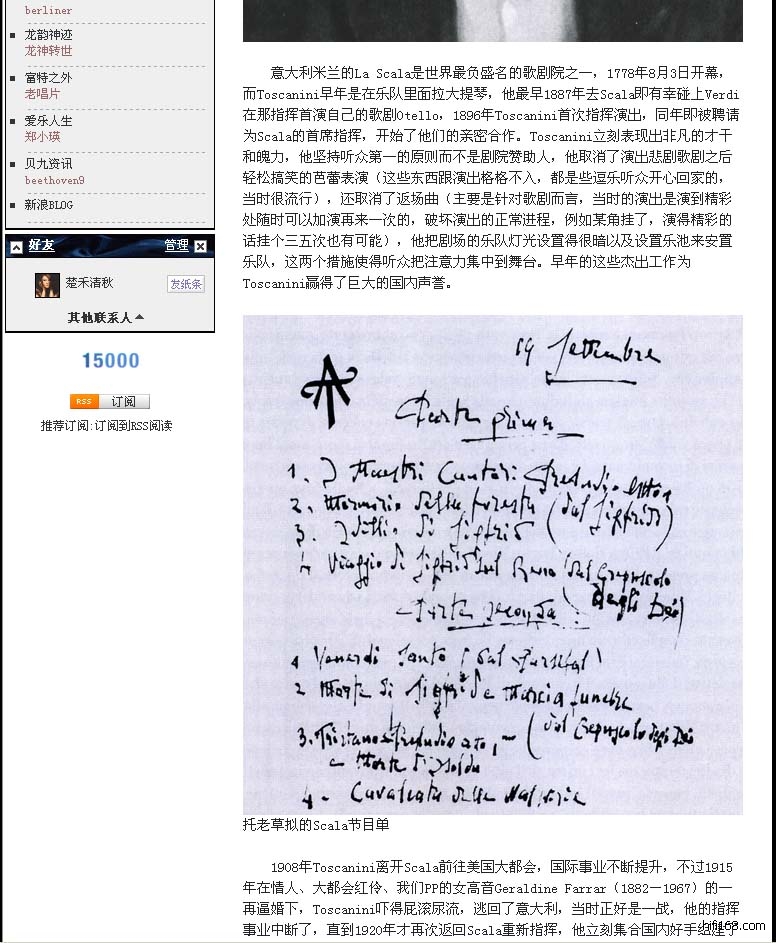 berliner
龙韵神迹
龙神转世
富特之外
老唱片
爱乐人生
郑小瑛
贝九资讯
beethoven9
新浪BLOG
好友 管理
楚禾清秋 发纸条
其他联系人
15000
RSS 订阅
推荐订阅:订阅到RSS阅读
意大利米兰的La Scala是世界最负盛名的歌剧院之一，1778年8月3日开幕，
而Toscanini早年是在乐队里面拉大提琴，他最早1887年去Scala即有幸碰上Verdi
在那指挥首演自己的歌剧Otello，1896年Toscanini首次指挥演出，同年即被聘请
为Scala的首席指挥，开始了他们的亲密合作。Toscanini立刻表现出非凡的才干
和魄力，他坚持听众第一的原则而不是剧院赞助人，他取消了演出悲剧歌剧之后
轻松搞笑的芭蕾表演（这些东西跟演出格格不入，都是些逗乐听众开心回家的，
当时很流行），还取消了返场曲（主要是针对歌剧而言，当时的演出是演到精彩
处随时可以加演再来一次的，破坏演出的正常进程，例如某角挂了，演得精彩的
话挂个三五次也有可能），他把剧场的乐队灯光设置得很暗以及设置乐池来安置
乐队，这两个措施使得听众把注意力集中到舞台。早年的这些杰出工作为
Toscanini赢得了巨大的国内声誉。
19 Settembre
Parte prima
1. I Maestri Cantori Preludio
2. Mormorio della foresta (dal Sigfrido)
3. Idillio di Sigfrido
4. Viaggio di Sigfrido sul Reno (dal Crepuscolo
degli Dei)
Parte seconda
1 Venerdi Santo (dal Parsifal)
2 Morte di Sigfrido e Marcia funebre
(dal Crepuscolo degli Dei
3. Tristano Preludio atto 1
e Morte d'Isolda
4. Cavalcata delle Valkirie
托老草拟的Scala节目单
1908年Toscanini离开Scala前往美国大都会，国际事业不断提升，不过1915
年在情人、大都会红伶、我们PP的女高音Geraldine Farrar（1882—1967）的一
再逼婚下，Toscanini吓得屁滚尿流，逃回了意大利，当时正好是一战，他的指挥
事业中断了，直到1920年才再次返回Scala重新指挥，他立刻集合国内好手组建了
hifi168.com